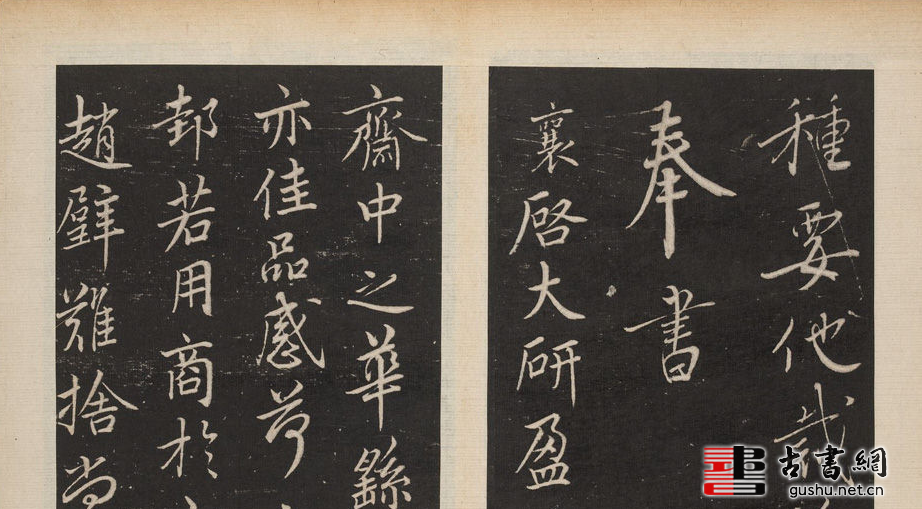 種要他
奉書
襄啓大研盈
齋中之華繇
亦佳品感荷
邽若用商於
趙璧難捨尚
古書網
gushu.net.cn